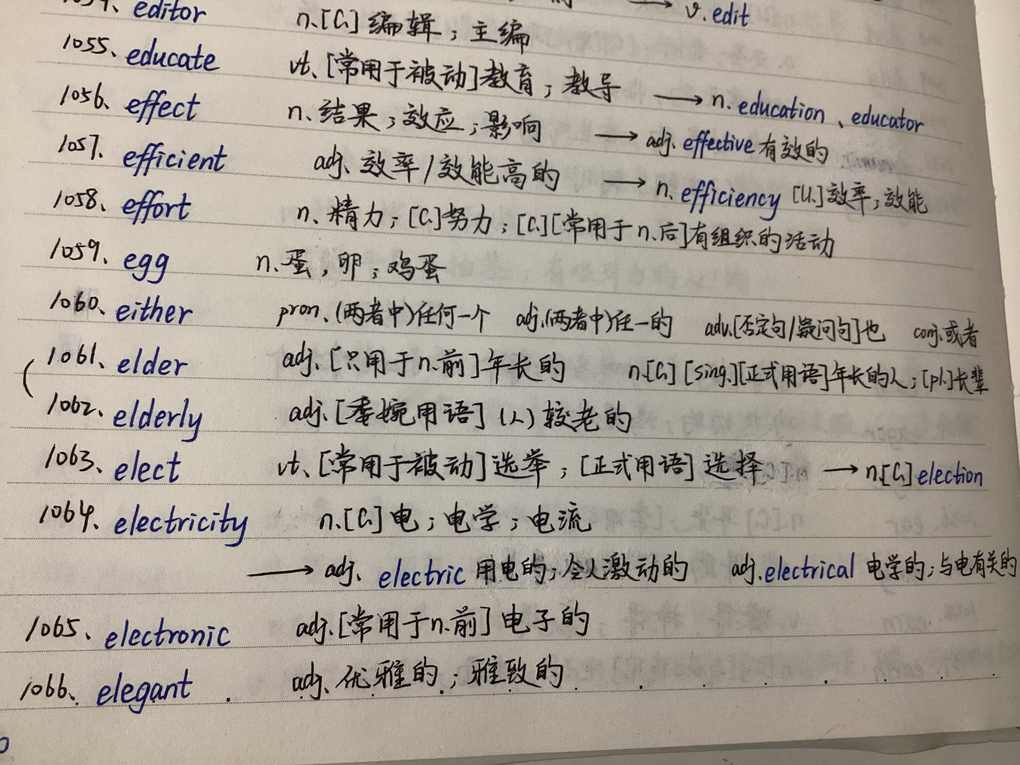 1054、editor n.[C.]编辑；主编 → v.edit
1055、educate vt.[常用于被动]教育；教导 → n. education、educator
1056、effect n.结果；效应；影响 → adj.effective有效的
1057、efficient adj.效率/效能高的 → n.efficiency [U.]效率；效能
1058、effort n.精力；[C.]努力；[C.][常用于n.后]有组织的活动
1059、egg n.蛋，卵；鸡蛋
1060、either pron.(两者中)任何一个 adj.(两者中)任一的 adv.[否定句/疑问句]也 conj.或者
1061、elder adj.[只用于n.前]年长的 n.[C.][sing.][正式用语]年长的人；[pl.]长辈
1062、elderly adj.[委婉用语](人)较老的
1063、elect vt.[常用于被动]选举；[正式用语]选择 → n.[C.]election
1064、electricity n.[C.]电；电学；电流
→ adj. electric用电的；令人激动的 adj.electrical电学的；与电有关的
1065、electronic adj.[常用于n.前]电子的
1066、elegant adj.优雅的；雅致的